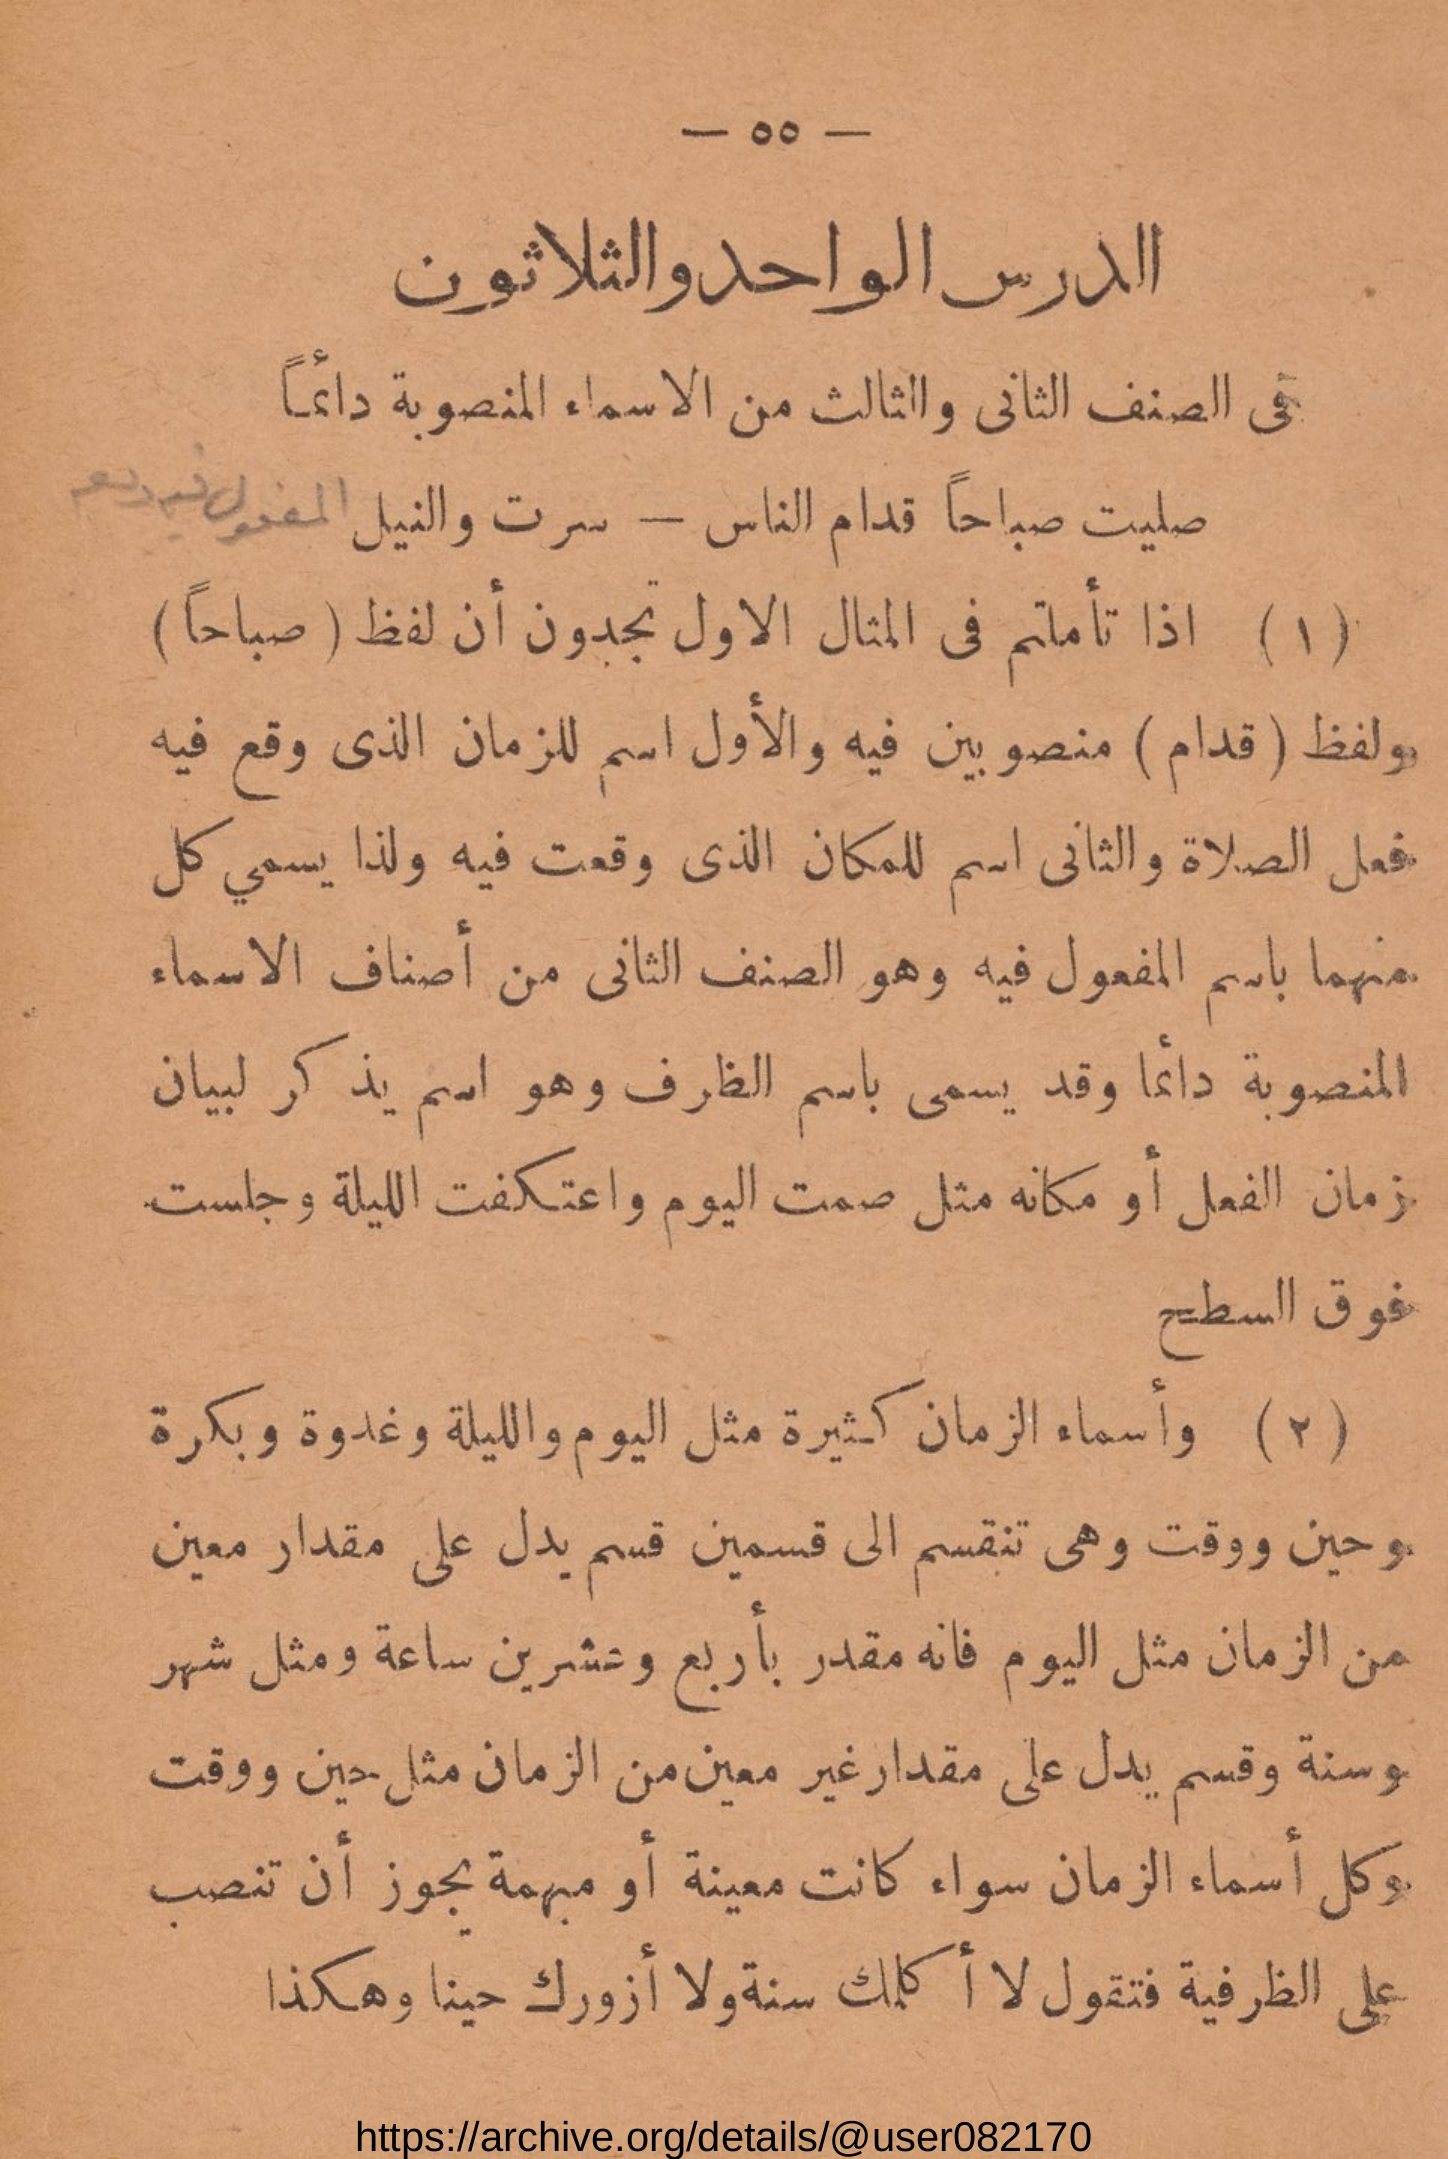 — ٥٥ —
الدرس الواحد والثلاثون
فى الصنف الثانى والثالث من الاسماء المنصوبة دائمًـاً
صليت صباحاً قدام الناس — سرت والنيل المفعول فيه
(١) اذا تأملتم فى المثال الاول تجدون أن لفظ (صباحاً)
ولفظ (قدام) منصوبين فيه والأول اسم للزمان الذى وقع فيه
فعل الصلاة والثانى اسم للمكان الذى وقعت فيه ولذا يسمي كل
منهما باسم المفعول فيه وهو الصنف الثانى من أصناف الاسماء
المنصوبة دائما وقد يسمى باسم الظرف وهو اسم يذكر لبيان
زمان الفعل أو مكانه مثل صمت اليوم واعتكفت الليلة وجلست
فوق السطح
(٢) وأسماء الزمان كثيرة مثل اليوم والليلة وغدوة وبكرة
وحين ووقت وهى تنقسم الى قسمين قسم يدل على مقدار معين
من الزمان مثل اليوم فانه مقدر بأربع وعشرين ساعة ومثل شهر
وسنة وقسم يدل على مقدار غير معين من الزمان مثل حين ووقت
وكل أسماء الزمان سواء كانت معينة أو مبهمة يجوز أن تنصب
على الظرفية فتقول لا أكلمك سنة ولا أزورك حينا وهكذا
https://archive.org/details/@user082170